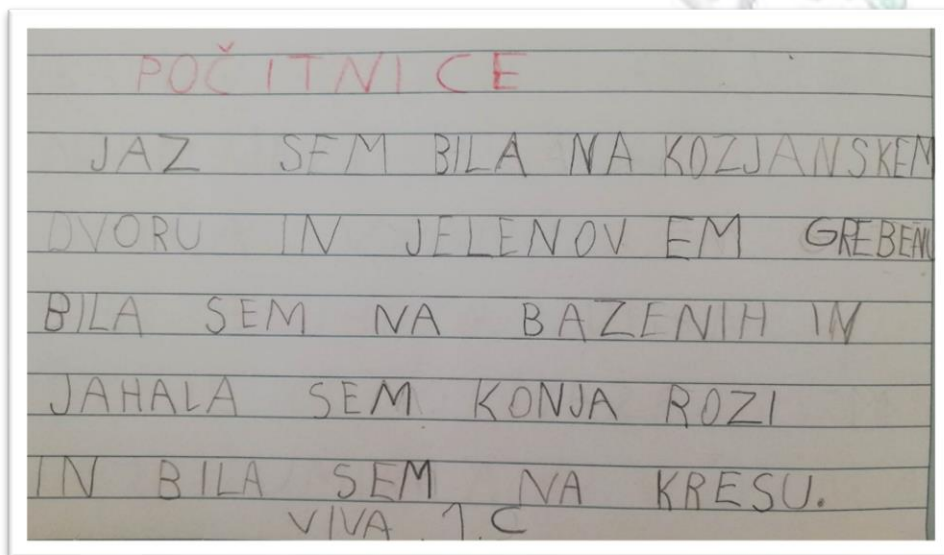 POČITNICE
JAZ SEM BILA NA KOZJANSKEM
DVORU IN JELENOVEM GREBENU
BILA SEM NA BAZENIH IN
JAHALA SEM KONJA ROZI
IN BILA SEM NA KRESU.
VIVA 1.C